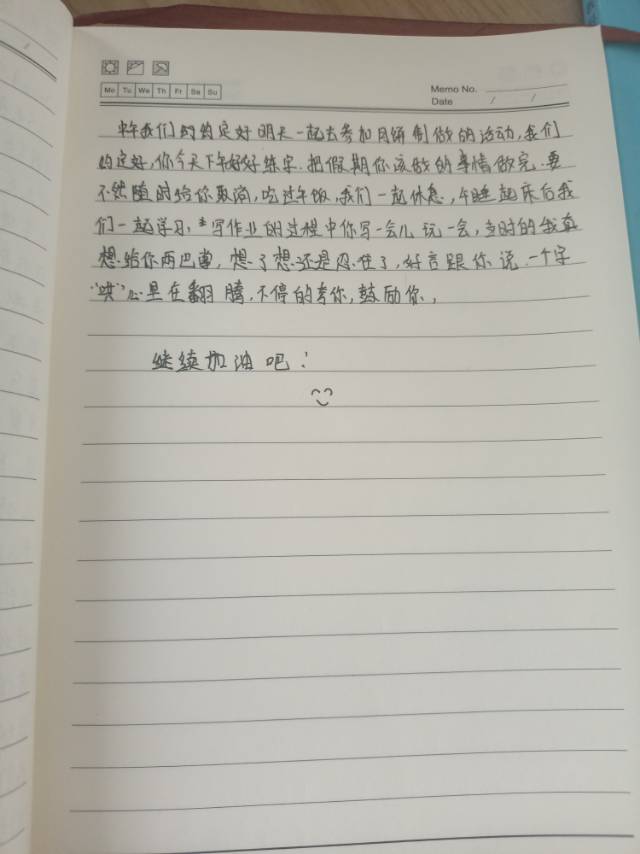 Mo Tu We Th Fr Sa Su
Memo No.
Date / /
中午我们约约定好明天一起去参加月饼制做的活动,我们
约定好,你今天下午好好练字.把假期你该做的事情做完.要
不然随时给你取消,吃过午饭,我们一起休息,午睡起床后我
们一起学习,写作业的过程中你写一会儿玩一会,当时的我真
想给你两巴掌,想了想还是忍住了,好言跟你说.一个字
"哄"心里在翻腾,不停的夸你,鼓励你,
继续加油吧!